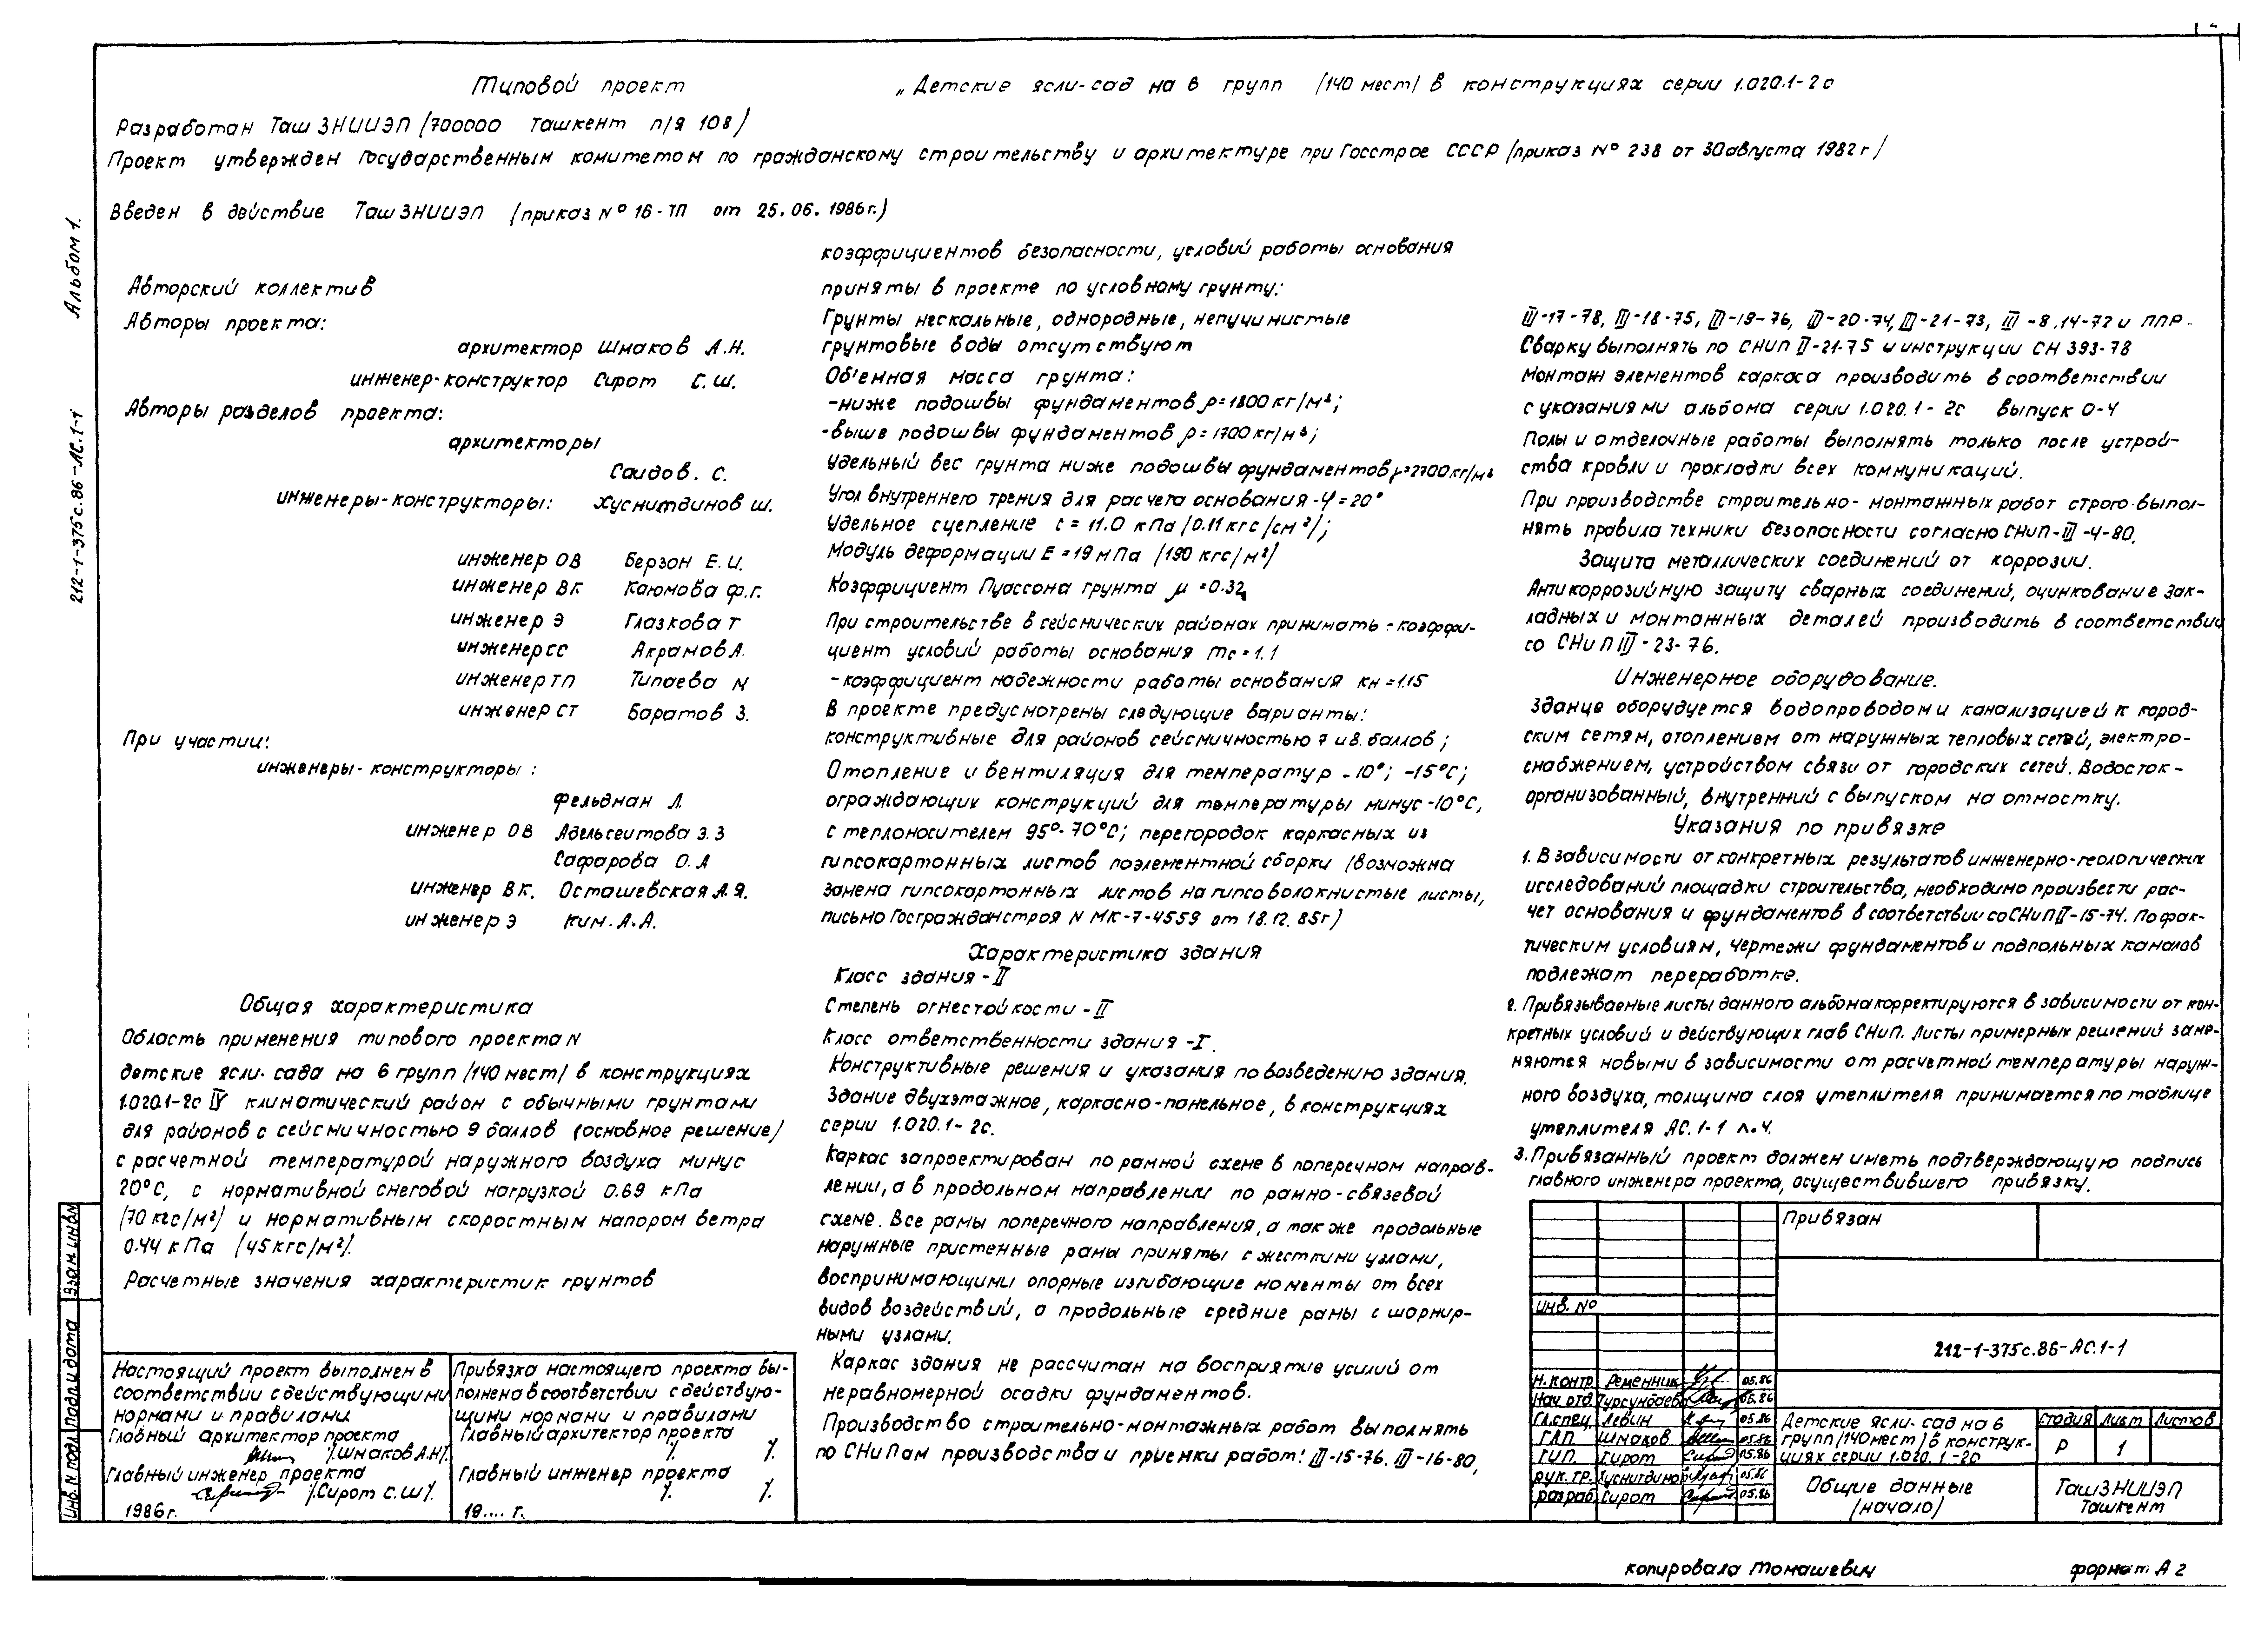 Типовой проект „Детские ясли-сад на 6 групп /140 мест/ в конструкциях серии 1.020.1-2с
Разработан ТашЗНИИЭП /700000 Ташкент п/я 108/
Проект утвержден Государственным комитетом по гражданскому строительству и архитектуре при Госстрое СССР /приказ № 238 от 30 августа 1982г/
Введен в действие ТашЗНИИЭП /приказ № 16-ТП от 25.06.1986г./
Альбом 1.
212-1-375с.86-АС.1-1
Авторский коллектив
Авторы проекта:
архитектор Шмаков А.Н.
инженер-конструктор Сирот С.Ш.
Авторы разделов проекта:
архитекторы
Саидов. С.
инженеры-конструкторы: Хуснитдинов Ш.
инженер ОВ Берзон Е.И.
инженер ВК Каюмова Ф.Г.
инженер Э Глазкова Т
инженер СС Акрамов А.
инженер ТП Типаева М
инженер СТ Баратов З.
При участии:
инженеры-конструкторы:
Фельдман Л.
инженер ОВ Адельсеитова З.З
Сафарова О.А
инженер ВК. Осташевская А.Я.
инженер Э Ким.А.А.
Общая характеристика
Область применения типового проекта N
детские ясли-сада на 6 групп /140 мест/ в конструкциях
1.020.1-2с IV климатический район с обычными грунтами
для районов с сейсмичностью 9 баллов (основное решение/
с расчетной температурой наружного воздуха минус
20°С, с нормативной снеговой нагрузкой 0.69 кПа
/70 кгс/м²/ и нормативным скоростным напором ветра
0.44 кПа /45кгс/м²/.
Расчетные значения характеристик грунтов
Настоящий проект выполнен в
соответствии с действующими
нормами и правилами
Главный архитектор проекта
/.Шмаков А.Н/.
Главный инженер проекта
/.Сирот С.Ш/.
1986г.
Привязка настоящего проекта вы-
полнена в соответствии с действую-
щими нормами и правилами
Главный архитектор проекта
/. /.
Главный инженер проекта
/. /.
19.... г.
коэффициентов безопасности, условий работы основания
приняты в проекте по условному грунту:
Грунты нескальные, однородные, непучинистые
грунтовые воды отсутствуют
Об'емная масса грунта:
-ниже подошвы фундаментов ρ=1800кг/м³;
-выше подошвы фундаментов ρ=1700кг/м³;
Удельный вес грунта ниже подошвы фундаментов γ=2700кг/м³
Угол внутреннего трения для расчета основания -φ=20°
Удельное сцепление с = 11.0 кПа /0.11 кгс/см²/;
Модуль деформации Е = 19мПа /190 кгс/м²/
Коэффициент Пуассона грунта μ =0.32
При строительстве в сейсмических районах принимать - коэффи-
циент условий работы основания mс=1.1
-коэффициент надежности работы основания кн =1.15
В проекте предусмотрены следующие варианты:
конструктивные для районов сейсмичностью 7 и 8. баллов;
Отопление и вентиляция для температур -10°; -15°С;
ограждающих конструкций для температуры минус -10°С,
с теплоносителем 95°-70°С; перегородок каркасных из
гипсокартонных листов поэлементной сборки /возможна
замена гипсокартонных листов на гипсоволокнистые листы,
письмо Госгражданстроя N МК-7-4559 от 18.12.85г)
Характеристика здания
Класс здания - II
Степень огнестойкости - II
Класс ответственности здания -I.
Конструктивные решения и указания по возведению здания.
Здание двухэтажное, каркасно-панельное, в конструкциях
серии 1.020.1-2с.
Каркас запроектирован по рамной схеме в поперечном направ-
лении, а в продольном направлении по рамно-связевой
схеме. Все рамы поперечного направления, а также продольные
наружные пристенные рамы приняты с жесткими узлами,
воспринимающими опорные изгибающие моменты от всех
видов воздействий, а продольные средние рамы с шарнир-
ными узлами.
Каркас здания не рассчитан на восприятие усилий от
неравномерной осадки фундаментов.
Производство строительно-монтажных работ выполнять
по СНиПам производства и приемки работ: III-15-76. III-16-80,
III-17-78, III-18-75, III-19-76, III-20-74, III-21-73, III -8.14-72 и ППР.
Сварку выполнять по СНиП II-21-75 и инструкции СН 393-78
Монтаж элементов каркаса производить в соответствии
с указаниями альбома серии 1.020.1-2с выпуск 0-4
Полы и отделочные работы выполнять только после устрой-
ства кровли и прокладки всех коммуникаций.
При производстве строительно-монтажных работ строго выпол-
нять правила техники безопасности согласно СНиП-III-4-80.
Защита металлических соединений от коррозии.
Антикоррозийную защиту сварных соединений, оцинкование зак-
ладных и монтажных деталей производить в соответствии
со СНиП III-23-76.
Инженерное оборудование.
Здание оборудуется водопроводом и канализацией к город-
ским сетям, отоплением от наружных тепловых сетей, электро-
снабжением, устройством связи от городских сетей. Водосток-
организованный, внутренний с выпуском на отмостку.
Указания по привязке
1. В зависимости от конкретных результатов инженерно-геологических
исследований площадки строительства, необходимо произвести рас-
чет основания и фундаментов в соответствии со СНиП II-15-74. По фак-
тическим условиям, чертежи фундаментов и подпольных каналов
подлежат переработке.
2. Привязываемые листы данного альбома корректируются в зависимости от кон-
кретных условий и действующих глав СНиП. Листы примерных решений заме-
няются новыми в зависимости от расчетной температуры наруж-
ного воздуха, толщина слоя утеплителя принимается по таблице
утеплителя АС.1-1 л.4.
3. Привязанный проект должен иметь подтверждающую подпись
главного инженера проекта, осуществившего привязку.
Привязан
Инв. №
212-1-375с.86-АС.1-1
Н.контр. Ременник 05.86
Нач.отд. Турсунбаева 05.86
Гл.спец. Левин 05.86
ГАП. Шмаков 05.86
ГИП. Сирот 05.86
рук.гр. Хуснитдинов 05.86
разраб. Сирот 05.86
Детские ясли-сад на 6
групп /140 мест/ в конструк-
циях серии 1.020.1-2с
Стадия Лист Листов
Р 1
Общие данные
/начало/
ТашЗНИИЭП
Ташкент
Инв. N подл. Подп и дата Взам инв N
копировала Томашевич формат А2